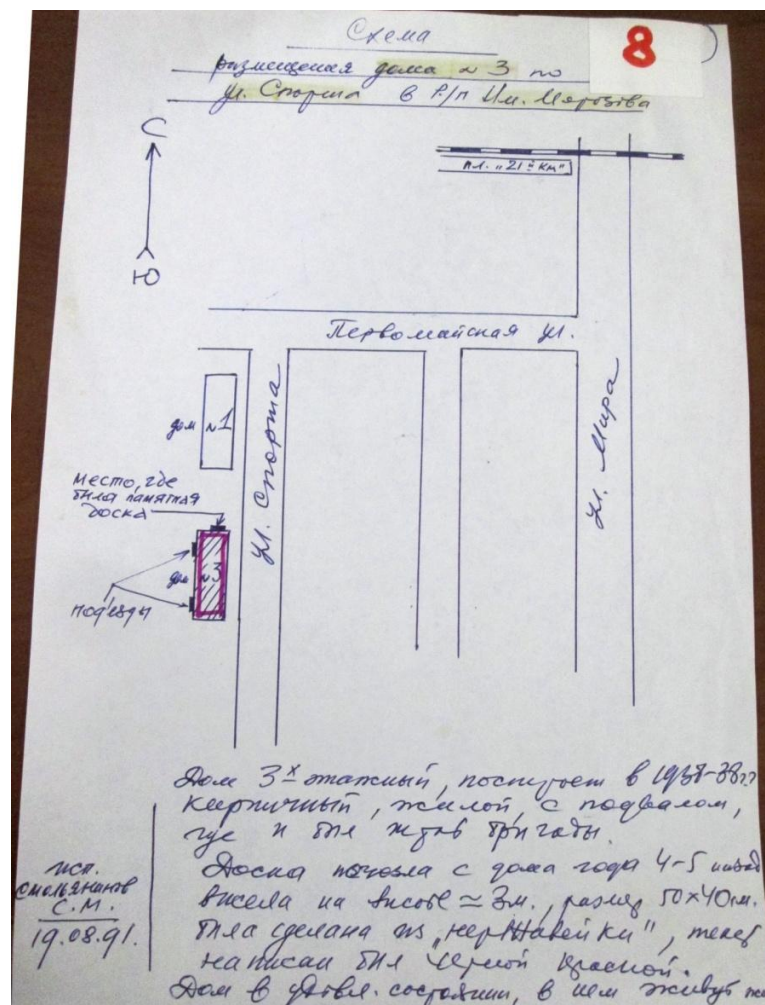 Схема
8
размещения дома № 3 по
ул. Спорта в Р/п Им. Морозова
С
Ю
пл. "21й км"
Первомайская ул.
дом №1
ул. Спорта
ул. Мира
Место, где
была памятная
доска
дом №3
под'езды
Дом 3х этажный, построен в 1938-39гг
кирпичный, жилой, с подвалом,
где и был штаб бригады.
Доска исчезла с дома года 4-5 назад
висела на высоте ≈ 3м., размер 50х40см.
была сделана из „нержавейки", текст
написан был черной краской.
Дом в удовл. состоянии, в нем живут
исп.
Смольянинов
С.М.
19.08.91.